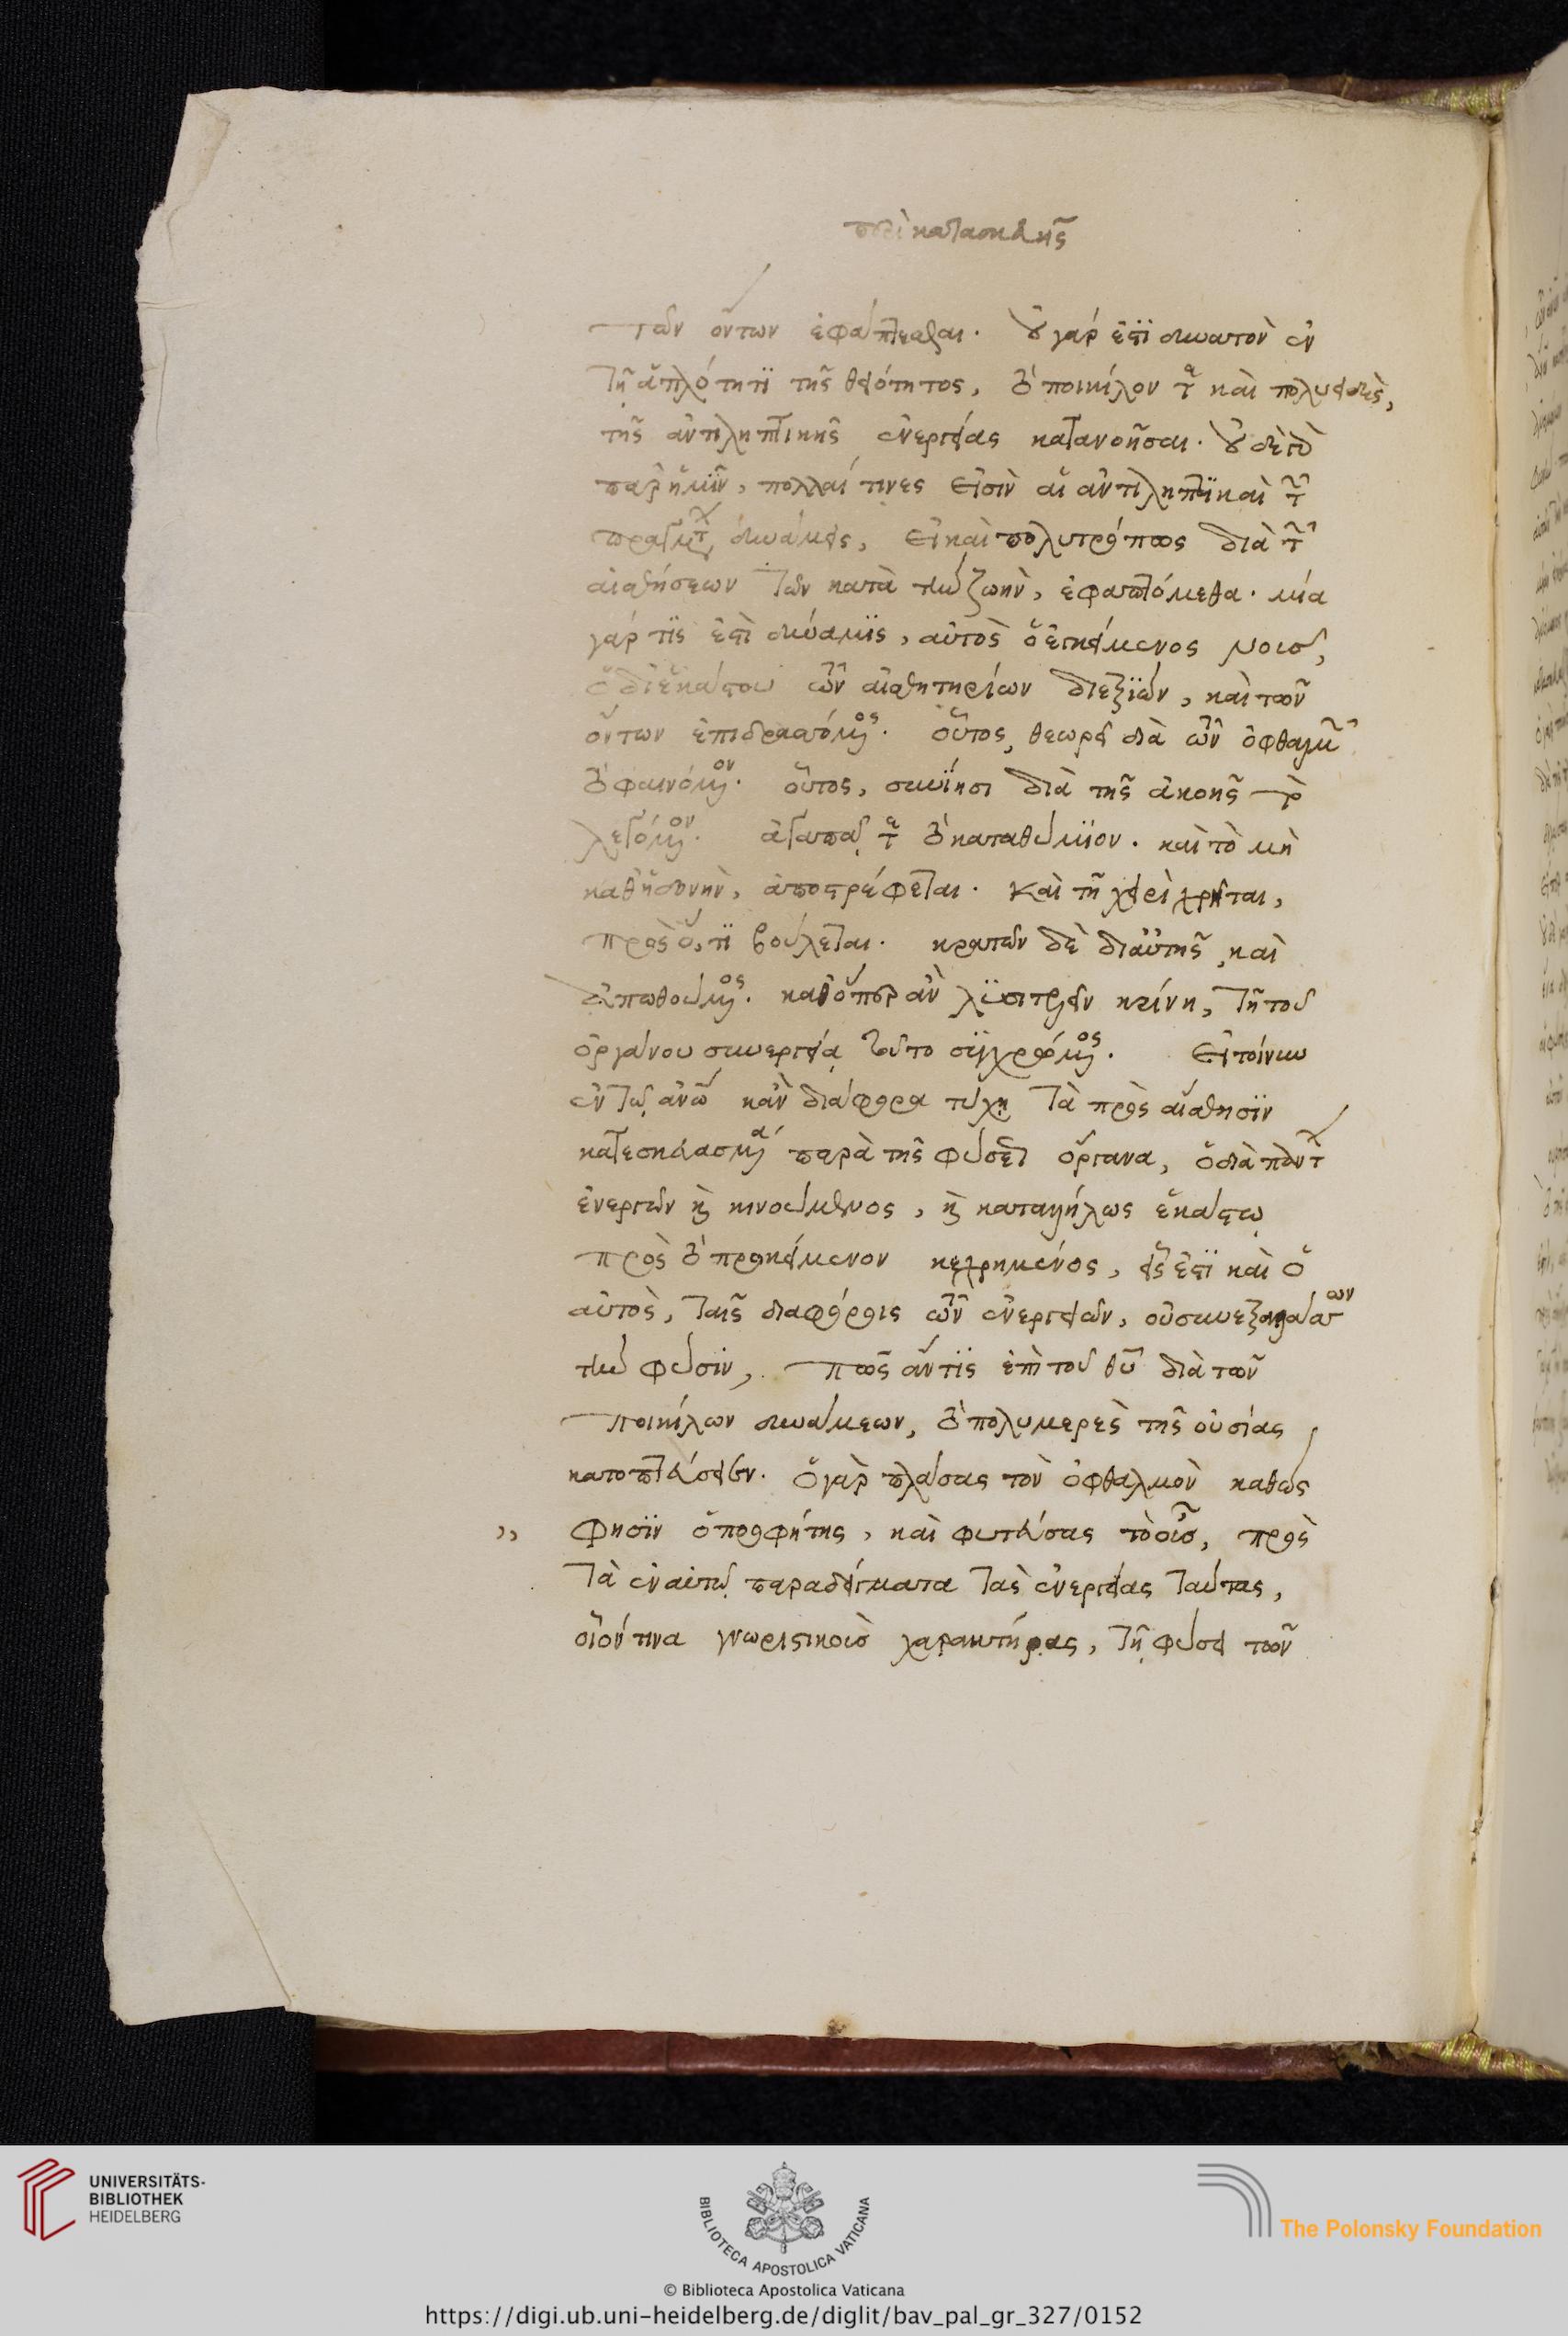 περὶ κατασκευῆς
τῶν ὄντων ἐφάπτεσθαι. οὐ γάρ ἐστι δυνατὸν ἐν
τῇ ἁπλότητι τῆς θειότητος, τὸ ποικίλον τε καὶ πολυειδὲς,
τῆς ἀντιληπτικῆς ἐνεργείας κατανοῆσαι. οὐδὲ γὰρ
παρ' ἡμῖν, πολλαί τινες εἰσὶν αἱ ἀντιληπτικαὶ τῶν
πραγμάτων δυνάμεις, εἰ καὶ πολυτρόπως διὰ τῶν
αἰσθήσεων τῶν κατὰ τὴν ζωὴν, ἐφαπτόμεθα. μία
γάρ τις ἐστὶ δύναμις, αὐτὸς ὁ ἐγκείμενος νοῦς,
ὁ δι' ἑκάστου τῶν αἰσθητηρίων διεξιὼν, καὶ τῶν
ὄντων ἐπιδρασσόμενος. οὗτος, θεωρεῖ διὰ τῶν ὀφθαλμῶν
τὸ φαινόμενον. οὗτος, συνίησι διὰ τῆς ἀκοῆς τὸ
λεγόμενον. ἀγαπᾷ τε τὸ καταθύμιον. καὶ τὸ μὴ
καθ' ἡδονὴν, ἀποστρέφεται. καὶ τῇ χειρὶ χρῆται,
πρὸς ὅ,τι βούλεται. κρατῶν δὲ δι' αὐτῆς, καὶ
ἀπωθούμενος. καθ' ὅπερ ἂν λυσιτελεῖν κρίνῃ, τῇ τοῦ
ὀργάνου συνεργείᾳ τοῦτο συγχρώμενος. εἰ τοίνυν
ἐν τῷ ἀνῶ κἂν διάφορα τύχῃ τὰ πρὸς αἴσθησιν
κατεσκευασμένα παρὰ τῆς φύσεως ὄργανα, ὁ διὰ πάντων
ἐνεργῶν καὶ κινούμενος, καὶ καταλλήλως ἑκάστῳ
πρὸς τὸ προκείμενον κεχρημένος, εἷς ἐστι καὶ ὁ
αὐτὸς, ταῖς διαφόροις τῶν ἐνεργειῶν, οὐ συνεξαλλάττων
τὴν φύσιν, πῶς ἄν τις ἐπὶ τοῦ θῦ διὰ τῶν
ποικίλων δυνάμεων, τὸ πολυμερὲς τῆς οὐσίας
κατοπτεύσειεν. ὁ γὰρ πλάσας τὸν ὀφθαλμὸν καθώς
,, φησιν ὁ προφήτης, καὶ φυτεύσας τὸ οὖς, πρὸς
τὰ ἐν αὐτῷ παραδείγματα τὰς ἐνεργείας ταύτας,
οἷόν τινα γνωριστικοὺς χαρακτήρας, τῇ φύσει τῶν
UNIVERSITÄTS-
BIBLIOTHEK
HEIDELBERG
BIBLIOTECA APOSTOLICA VATICANA
The Polonsky Foundation
© Biblioteca Apostolica Vaticana
https://digi.ub.uni-heidelberg.de/diglit/bav_pal_gr_327/0152